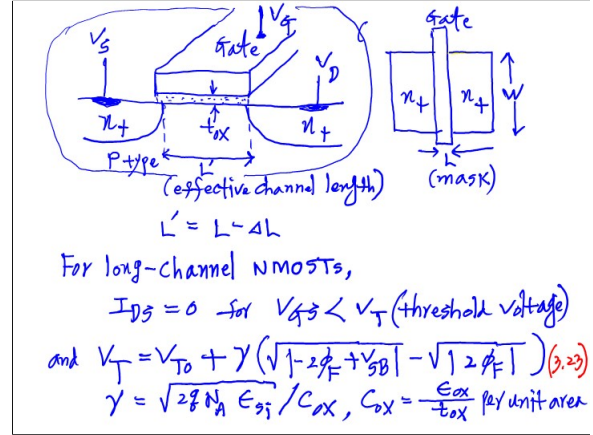 Gate V_G
V_S
V_D
n+ t_ox n+
P-type L'
(effective channel length)
Gate
n+ n+ W
L
(mask)
L' = L - ΔL
For long-channel NMOSTs,
I_DS = 0 for V_GS < V_T (threshold voltage)
and V_T = V_T0 + γ(√|-2φ_F + V_SB| - √|2φ_F|) (3.23)
γ = √2qN_A ε_si / C_ox, C_ox = ε_ox/t_ox per unit area